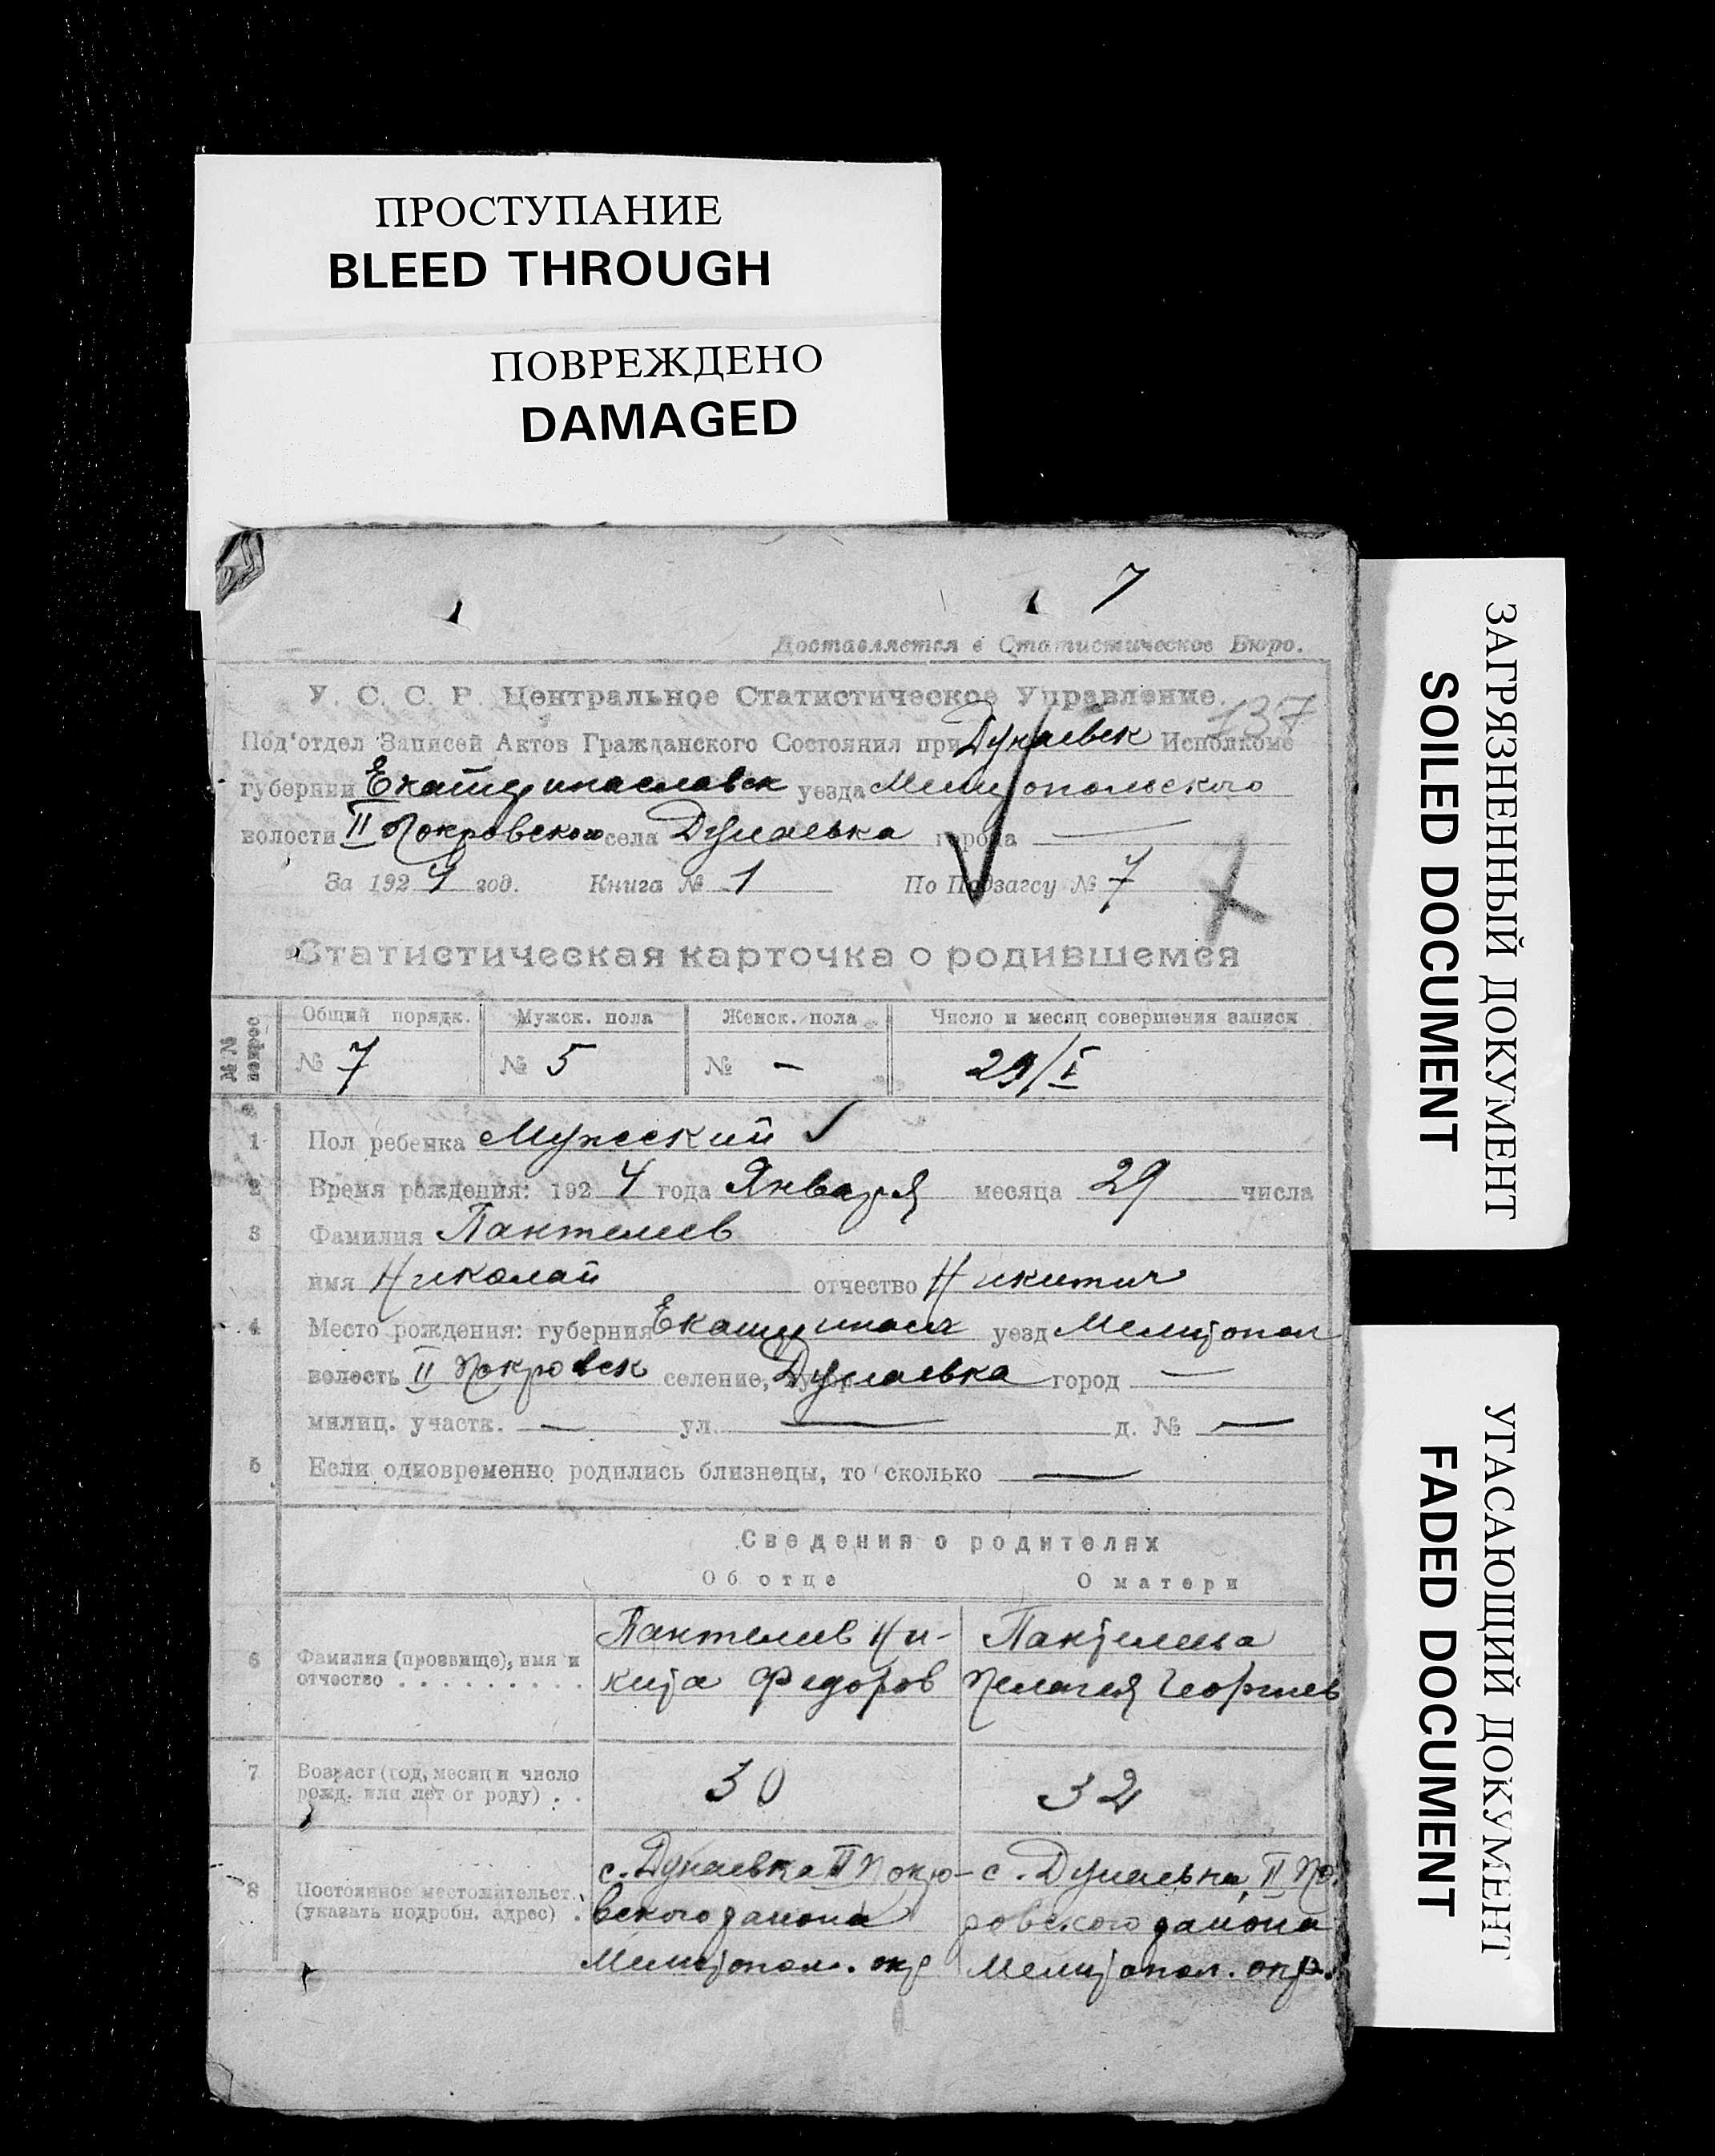 ПРОСТУПАНИЕ
BLEED THROUGH
ПОВРЕЖДЕНО
DAMAGED
7
Доставляется в Статистическое Бюро.
У. С. С. Р. Центральное Статистическое Управление.
137
Под'отдел Записей Актов Гражданского Состояния при Дунаевск Исполкоме
губернии Екатеринославск уезда Мелитопольского
волости II Покровской села Дунаевка города —
За 1924 год. Книга № 1 По Подзагсу № 7
Статистическая карточка о родившемся
№ № вопрос Общий порядк. Мужск. пола Женск. пола Число и месяц совершения записи
№ 7 № 5 № - 29/I
1 Пол ребенка Мужеский
2 Время рождения: 1924 года Января месяца 29 числа
3 Фамилия Пантелеев
имя Николай отчество Никитич
4 Место рождения: губерния Екатериносл уезд Мелитопол
волость II Покровск селение, Дунаевка город —
милиц. участк. — ул. — д. № —
5 Если одновременно родились близнецы, то сколько —
Сведения о родителях
Об отце О матери
6 Фамилия (прозвище), имя и отчество . . . . . . . . . Пантелеев Ни- Пантелеева
кита Федоров Пелагея Георгиев
7 Возраст (год, месяц и число рожд. или лет от роду) . . 30 32
8 Постоянное местожительст. (указать подробн. адрес) . с. Дунаевка II Покро- с. Дунаевка, II По.
вского района ровского района
Мелитопол. окр Мелитопол. окр.
ЗАГРЯЗНЕННЫЙ ДОКУМЕНТ
SOILED DOCUMENT
УГАСАЮЩИЙ ДОКУМЕНТ
FADED DOCUMENT